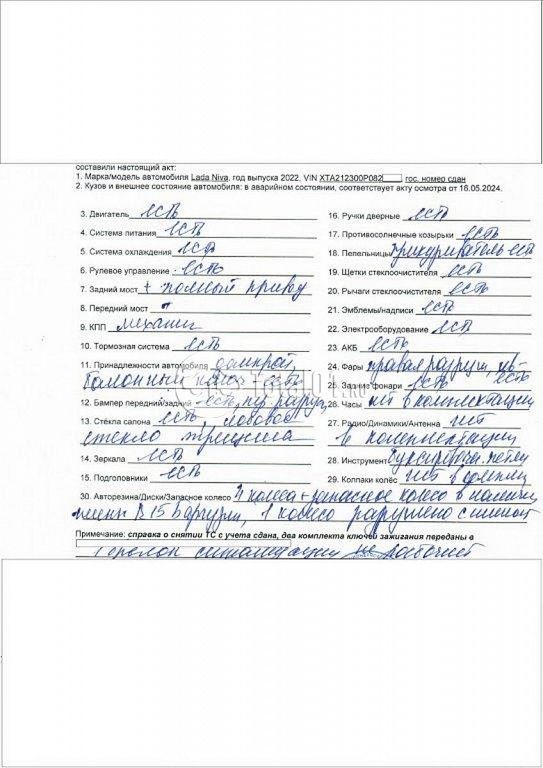 составили настоящий акт:
1. Марка/модель автомобиля Lada Niva, год выпуска 2022, VIN XTA212300P082 гос. номер сдан
2. Кузов и внешнее состояние автомобиля: в аварийном состоянии, соответствует акту осмотра от 18.05.2024.
3. Двигатель есть
4. Система питания есть
5. Система охлаждения есть
6. Рулевое управление есть
7. Задний мост + полный привод
8. Передний мост
9. КПП механич
10. Тормозная система есть
11. Принадлежности автомобиля домкрат,
баллонный ключ есть
12. Бампер передний/задний есть, пер. разруш
13. Стёкла салона есть, лобовое
стекло трещина
14. Зеркала есть
15. Подголовники есть
16. Ручки дверные есть
17. Противосолнечные козырьки есть
18. Пепельницы прикуриватель есть
19. Щетки стеклоочистителя есть
20. Рычаги стеклоочистителя есть
21. Эмблемы/надписи есть
22. Электрооборудование есть
23. АКБ есть
24. Фары правая разруш, лев-
есть
25. Задние фонари есть
26. Часы нет в комплектации
27. Радио/Динамики/Антенна нет
в комплектации
28. Инструмент буксировочн. петли
29. Колпаки колёс нет
30. Авторезина/Диски/Запасное колесо 4 колеса + запасное колесо в наличии
шины R15 1 колесо разрушено с шиной
Примечание: справка о снятии ТС с учета сдана, два комплекта ключей зажигания переданы в
1 брелок сигнализации не рабочий